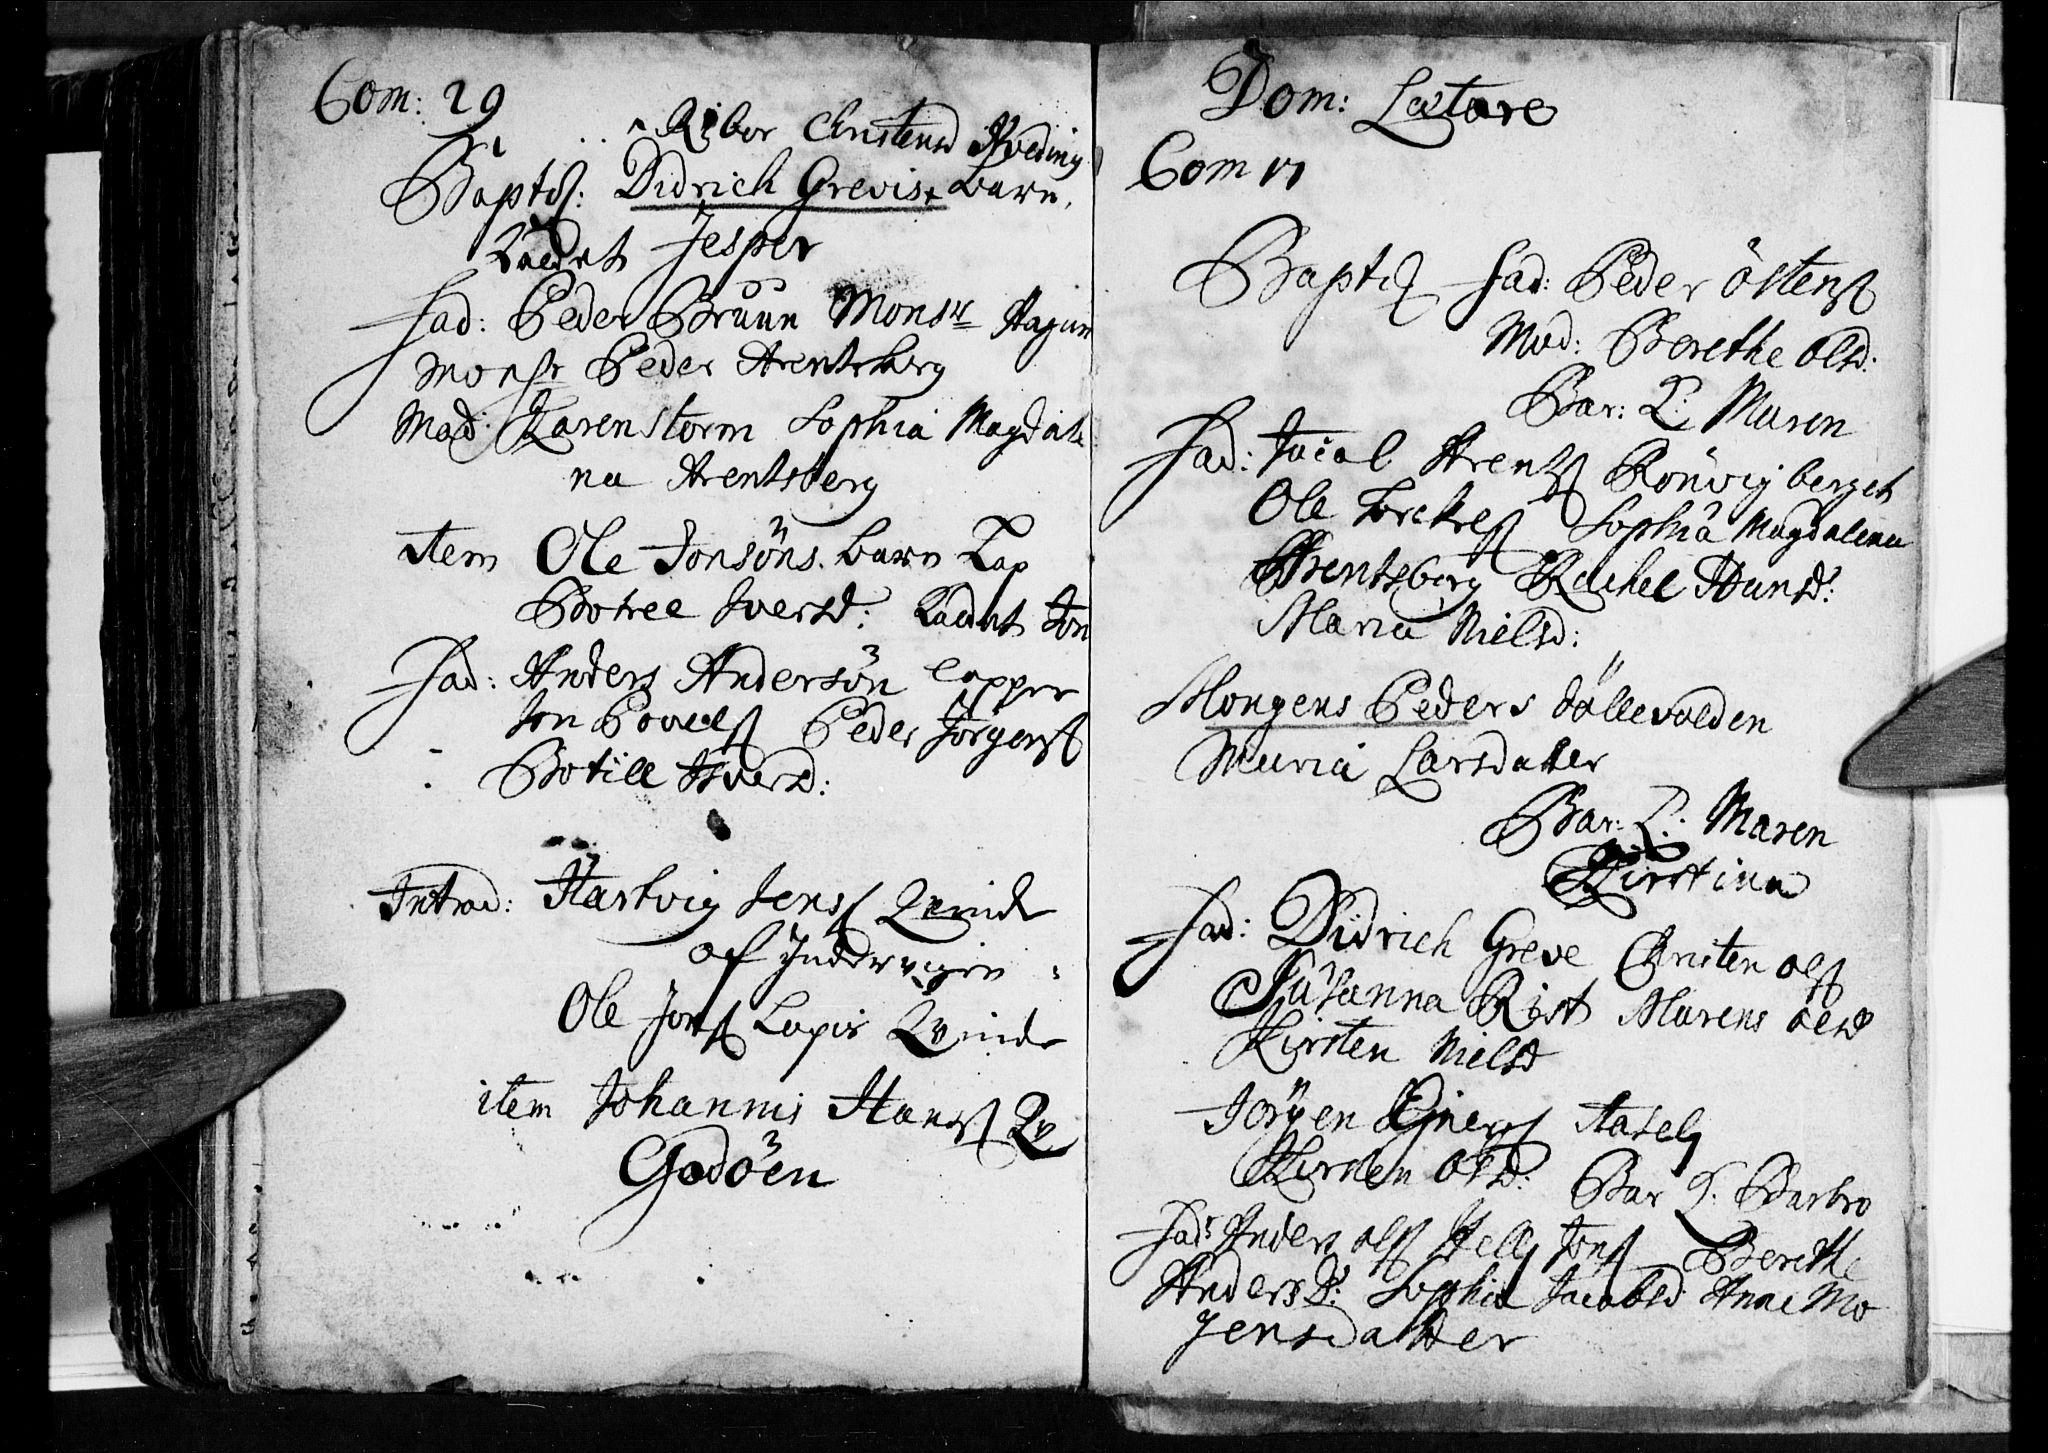 Com: 29
Ribor Christensd Hveding
Baptiss: Didrich Grevis + barn,
Kaldet Jesper
Fad: Peder Bruun Monsr Hagen
Monsr Peder Arentsberg
Mad: Karen Storm Sophia Magdale
na Arentsberg
item Ole Jonsöns barn Lap
Botele Iversd: Kaldet Jon
Fad: Anders Andersön Lapper
Jon Povels Peder Jörgens
Botille Iversd:
Introd: Hartvig Jens Qvinde
af Indervigen
Ole Jons Lapis Qvinde
item Johannis Hans Qv
Godöen
Dom: Lætare
Com 17
Baptiss Fad: Peder Östens
Mod: Berethe Olsd:
Bar: K: Maren
Fad: Jacob Arents Rönvig berget
Ole Sophia Magdalena
Arentsberg Rachel Hansd:
Maria Nielsd:
Mongens Peders
Maria Larsdatter
Bar: K: Maren
Kirstina
Fad: Didrich Greve Christen Ols
Susanna Rist Marens Olsd
Kirsten Nielsd
Jörgen Ejners
Kirsten Olsd: Bar K: Barbro
Fad: Anders Ols Jons Berethe
Anders D: Sophia Jacobsd Anne Mo
gensdatter